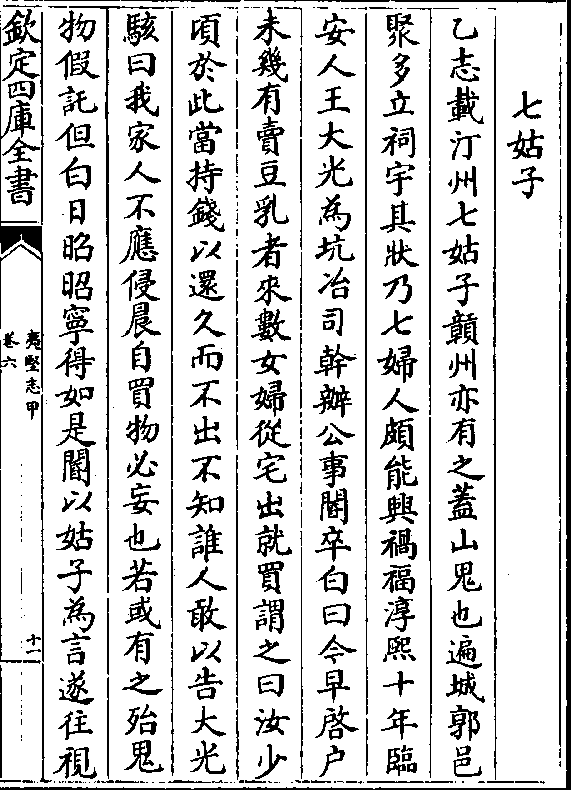 七姑子
乙志載汀州七姑子贑州亦有之蓋山鬼也遍城郭邑
聚多立祠宇其狀乃七婦人頗能興禍福淳熙十年臨
安人王大光為坑冶司幹辦公事閽卒白曰今早啓户
未幾有賣豆乳者來數女婦從宅出就買謂之曰汝少
頃於此當持錢以還久而不出不知誰人敢以告大光
駭曰我家人不應侵晨自買物必妄也若或有之殆鬼
物假託但白日昭昭寧得如是閽以姑子為言遂往視
欽定四庫全書
夷堅志甲
卷六
十一